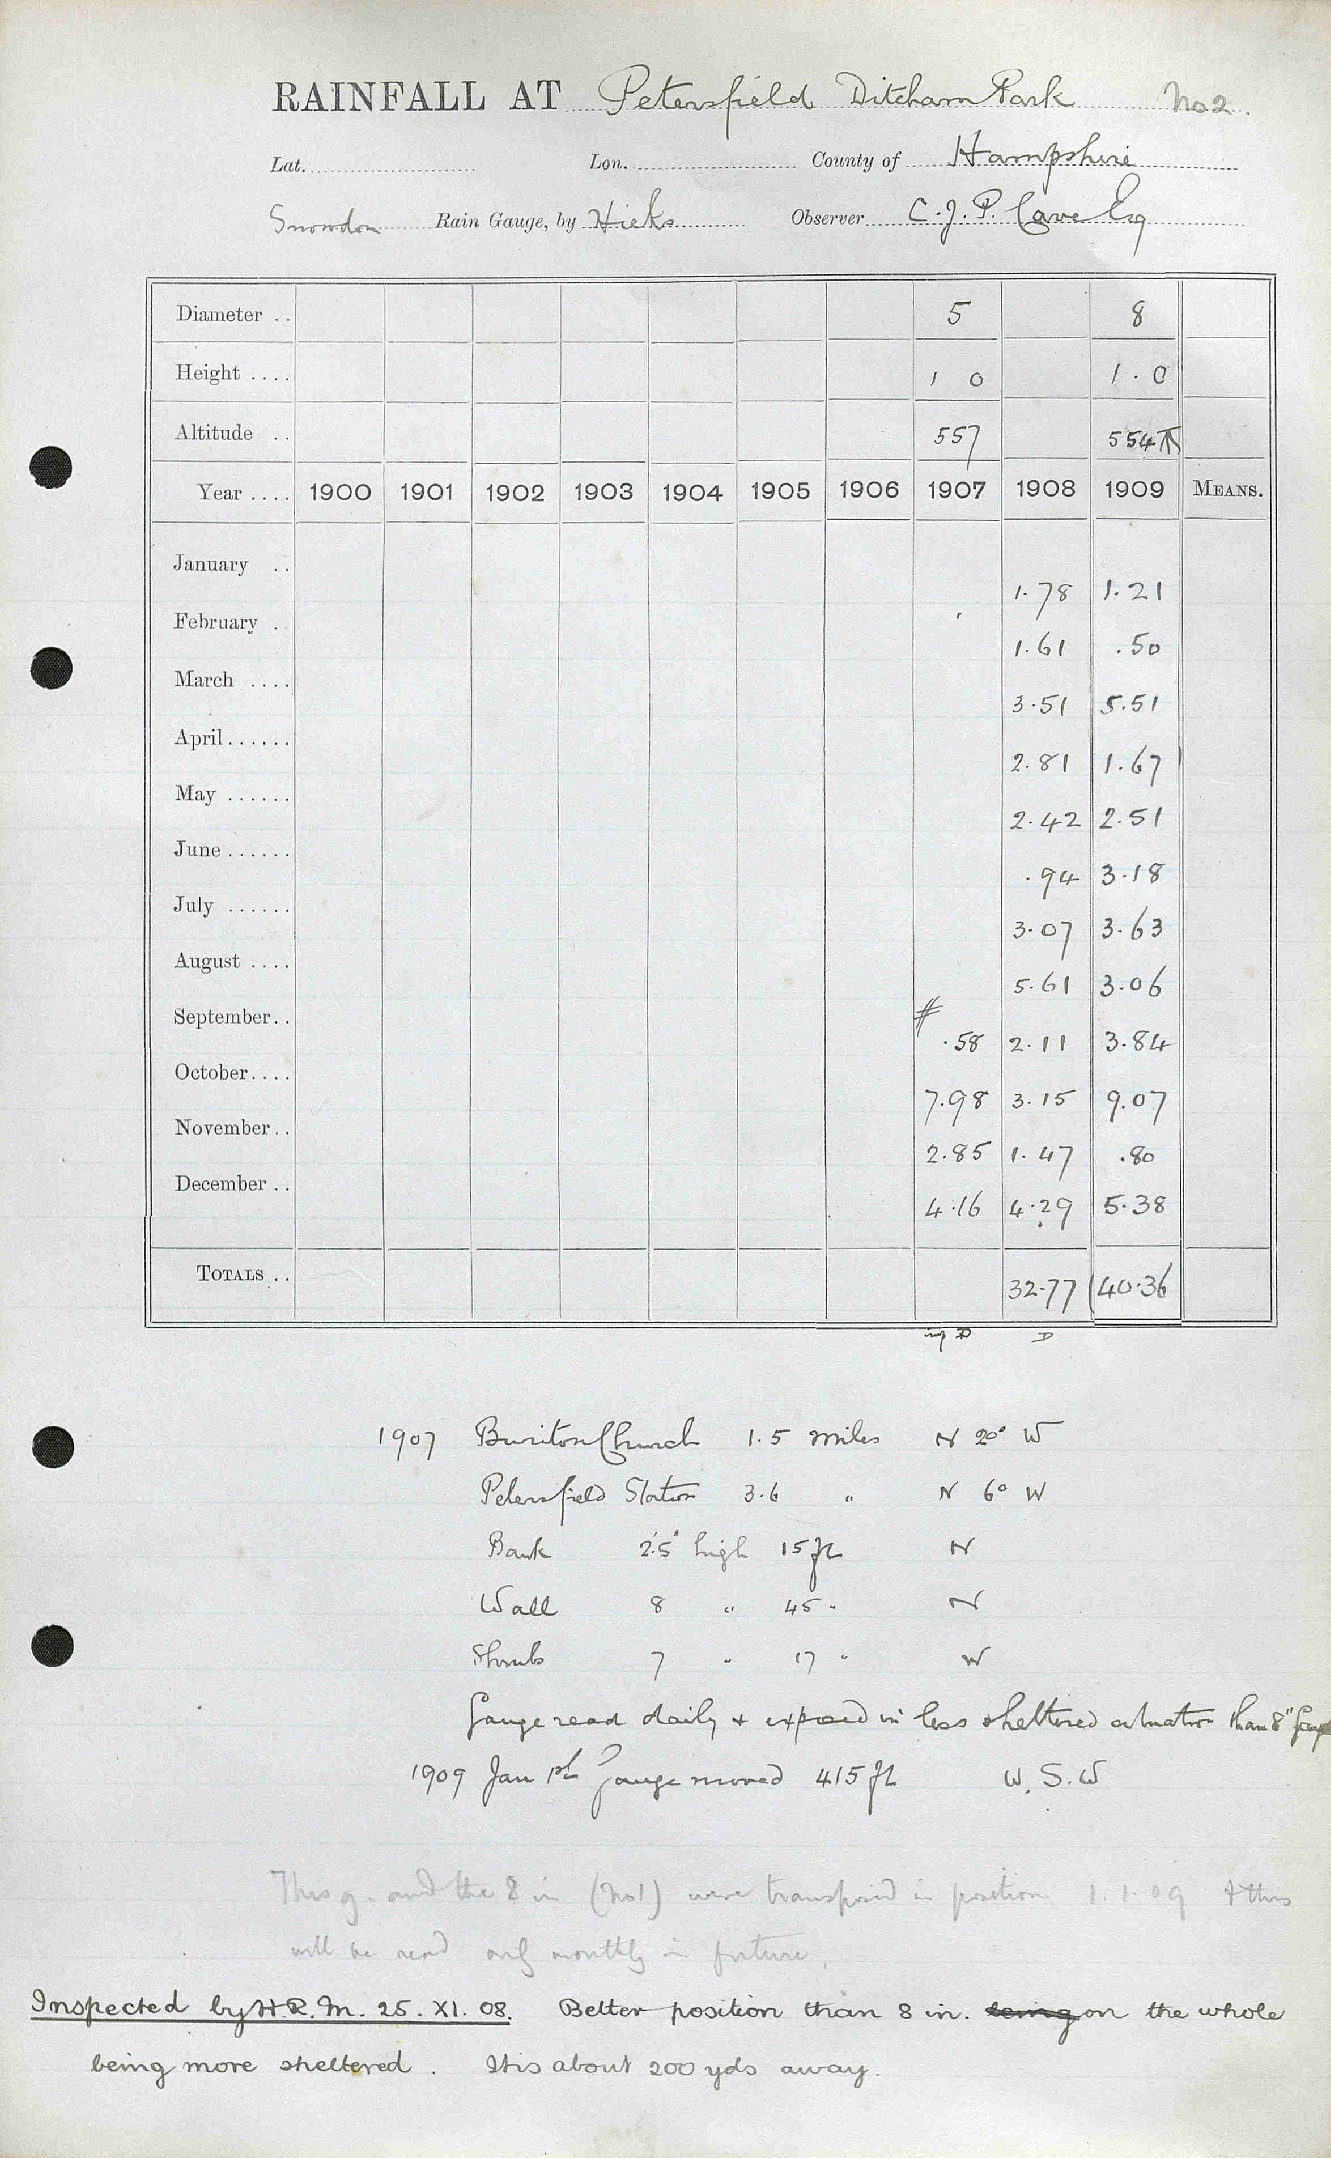 RAINFALL AT Petersfield Ditcham Park No 2.
Lat. Lon. County of Hampshire
Snowdon Rain Gauge, by Hicks Observer C. J. P. Cave Esq
Diameter .. 5 8
Height .... 1 0 1.0
Altitude .. 557 554
Year .... 1900 1901 1902 1903 1904 1905 1906 1907 1908 1909 MEANS.
January .. 1.78 1.21
February . 1.61 .50
March .... 3.51 5.51
April...... 2.81 1.67
May ...... 2.42 2.51
June ...... .94 3.18
July ...... 3.07 3.63
August .... 5.61 3.06
September.. # .58 2.11 3.84
October.... 7.98 3.15 9.07
November.. 2.85 1.47 .80
December .. 4.16 4.29 5.38
TOTALS .. 32.77 40.36
D D
1907 Buriton Church 1.5 miles N 20° W
Petersfield Station 3.6 " N 6° W
Bank 2.5' high 15 ft N
Wall 8 " 45 " N
Shrubs 7 " 17 " W
Gauge read daily + exposed in less sheltered situation than 8" Gauge
1909 Jan 1st Gauge moved 415 ft W.S.W
This g. and the 8 in (No 1) were transposed in position 1.1.09 & this
will be read only monthly in future.
Inspected by H.R.M. 25.XI.08. Better position than 8 in. being on the whole
being more sheltered. It is about 200 yds away.